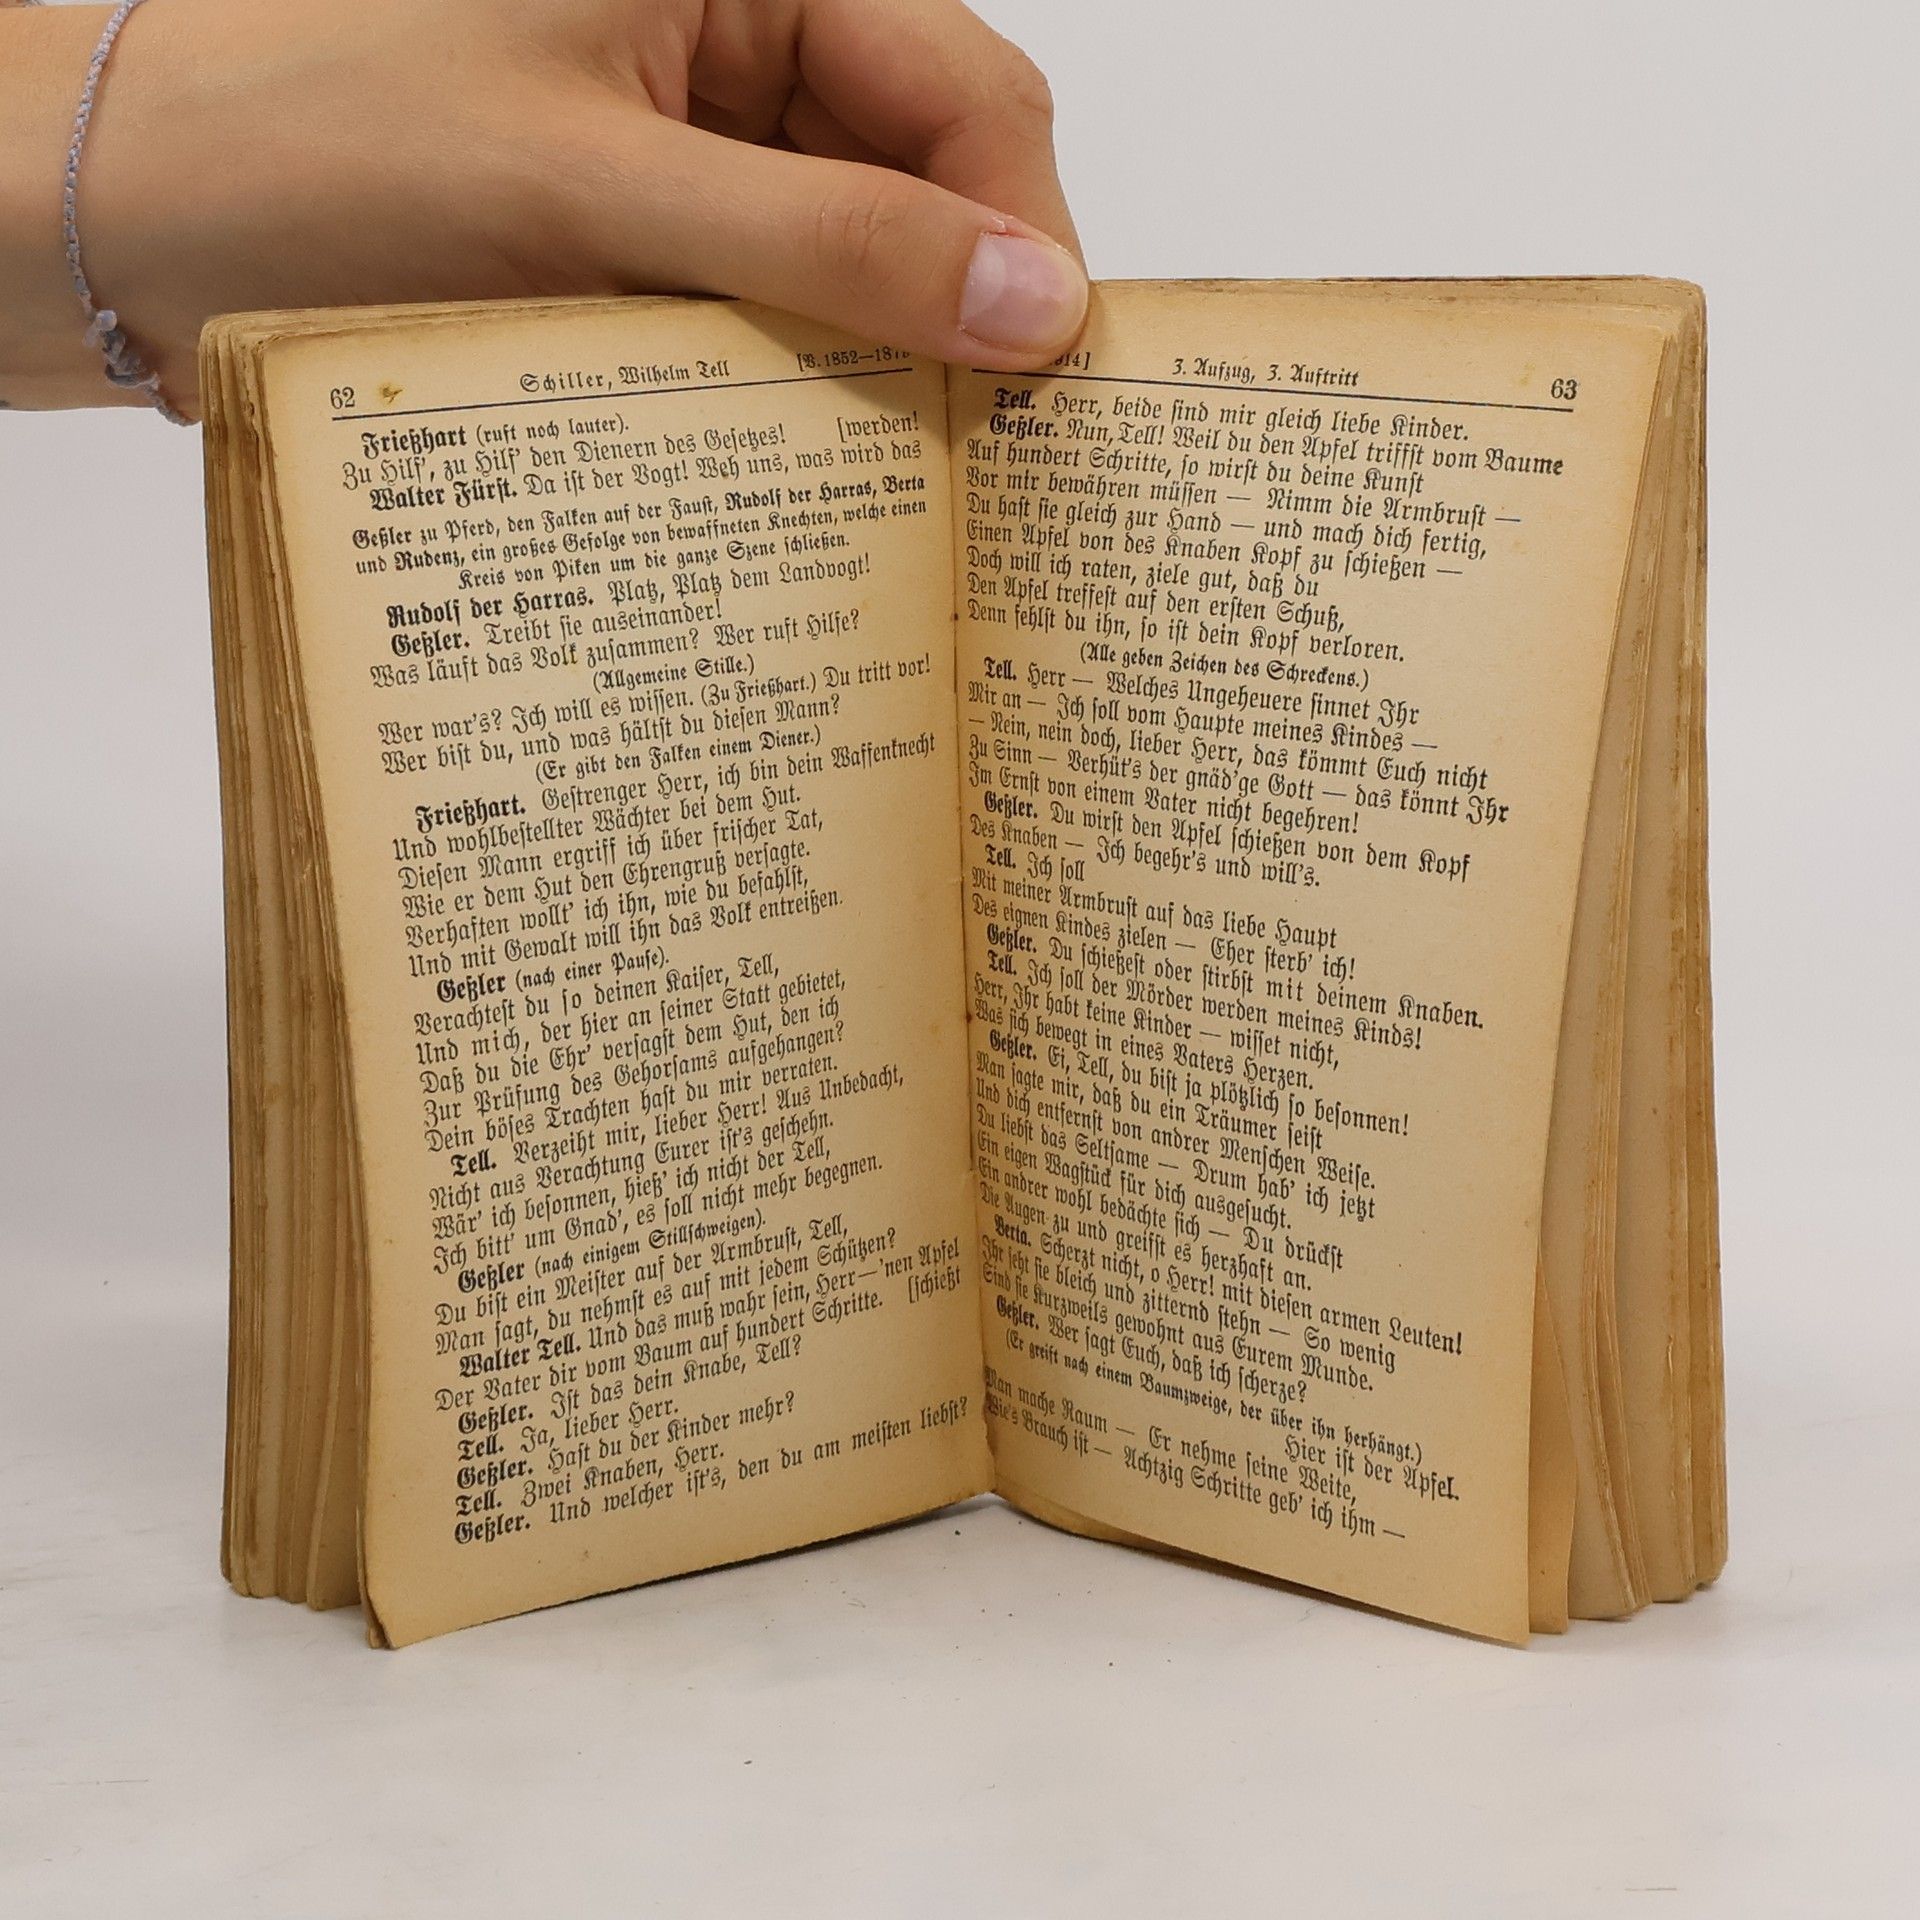 62 Schiller, Wilhelm Tell [V. 1852—187
Frießhart (ruft noch lauter).
Zu Hilf', zu Hilf' den Dienern des Gesetzes! [werden!
Walter Fürst. Da ist der Vogt! Weh uns, was wird das
Geßler zu Pferd, den Falken auf der Faust, Rudolf der Harras, Berta
und Rudenz, ein großes Gefolge von bewaffneten Knechten, welche einen
Kreis von Piken um die ganze Szene schließen.
Rudolf der Harras. Platz, Platz dem Landvogt!
Geßler. Treibt sie auseinander!
Was läuft das Volk zusammen? Wer ruft Hilfe?
(Allgemeine Stille.)
Wer war's? Ich will es wissen. (Zu Frießhart.) Du tritt vor!
Wer bist du, und was hältst du diesen Mann?
(Er gibt den Falken einem Diener.)
Frießhart. Gestrenger Herr, ich bin dein Waffenknecht
Und wohlbestellter Wächter bei dem Hut.
Diesen Mann ergriff ich über frischer Tat,
Wie er dem Hut den Ehrengruß versagte.
Verhaften wollt' ich ihn, wie du befahlst,
Und mit Gewalt will ihn das Volk entreißen.
Geßler (nach einer Pause).
Verachtest du so deinen Kaiser, Tell,
Und mich, der hier an seiner Statt gebietet,
Daß du die Ehr' versagst dem Hut, den ich
Zur Prüfung des Gehorsams aufgehangen?
Dein böses Trachten hast du mir verraten.
Tell. Verzeiht mir, lieber Herr! Aus Unbedacht,
Nicht aus Verachtung Eurer ist's geschehn.
Wär' ich besonnen, hieß' ich nicht der Tell,
Ich bitt' um Gnad', es soll nicht mehr begegnen.
Geßler (nach einigem Stillschweigen).
Du bist ein Meister auf der Armbrust, Tell,
Man sagt, du nehmst es auf mit jedem Schützen?
Walter Tell. Und das muß wahr sein, Herr—'nen Apfel
Der Vater dir vom Baum auf hundert Schritte. [schießt
Geßler. Ist das dein Knabe, Tell?
Tell. Ja, lieber Herr.
Geßler. Hast du der Kinder mehr?
Tell. Zwei Knaben, Herr.
Geßler. Und welcher ist's, den du am meisten liebst?
914] 3. Aufzug, 3. Auftritt 63
Tell. Herr, beide sind mir gleich liebe Kinder.
Geßler. Nun, Tell! Weil du den Apfel triffst vom Baume
Auf hundert Schritte, so wirst du deine Kunst
Vor mir bewähren müssen — Nimm die Armbrust —
Du hast sie gleich zur Hand — und mach dich fertig,
Einen Apfel von des Knaben Kopf zu schießen —
Doch will ich raten, ziele gut, daß du
Den Apfel treffest auf den ersten Schuß,
Denn fehlst du ihn, so ist dein Kopf verloren.
(Alle geben Zeichen des Schreckens.)
Tell. Herr — Welches Ungeheuere sinnet Ihr
Mir an — Ich soll vom Haupte meines Kindes —
— Nein, nein doch, lieber Herr, das kömmt Euch nicht
Zu Sinn — Verhüt's der gnäd'ge Gott — das könnt Ihr
Im Ernst von einem Vater nicht begehren!
Geßler. Du wirst den Apfel schießen von dem Kopf
Des Knaben — Ich begehr's und will's.
Tell. Ich soll
Mit meiner Armbrust auf das liebe Haupt
Des eignen Kindes zielen — Eher sterb' ich!
Geßler. Du schießest oder stirbst mit deinem Knaben.
Tell. Ich soll der Mörder werden meines Kinds!
Herr, Ihr habt keine Kinder — wisset nicht,
Was sich bewegt in eines Vaters Herzen.
Geßler. Ei, Tell, du bist ja plötzlich so besonnen!
Man sagte mir, daß du ein Träumer seist
Und dich entfernst von andrer Menschen Weise.
Du liebst das Seltsame — Drum hab' ich jetzt
Ein eigen Wagstück für dich ausgesucht.
Ein andrer wohl bedächte sich — Du drückst
Die Augen zu und greifst es herzhaft an.
Berta. Scherzt nicht, o Herr! mit diesen armen Leuten!
Ihr seht sie bleich und zitternd stehn — So wenig
Sind sie Kurzweils gewohnt aus Eurem Munde.
Geßler. Wer sagt Euch, daß ich scherze?
(Er greift nach einem Baumzweige, der über ihn herhängt.)
Hier ist der Apfel.
Man mache Raum — Er nehme seine Weite,
Wie's Brauch ist — Achtzig Schritte geb' ich ihm —